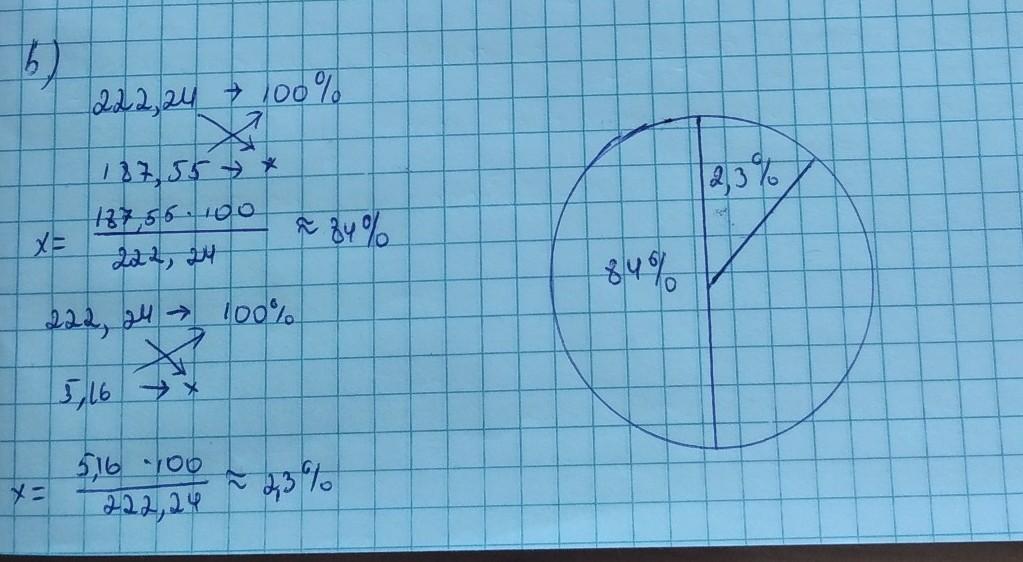 b)
222,24 → 100%
187,55 → x
x = 187,55 · 100 / 222,24 ≈ 84%
222,24 → 100%
5,16 → x
x = 5,16 · 100 / 222,24 ≈ 2,3%
2,3%
84%